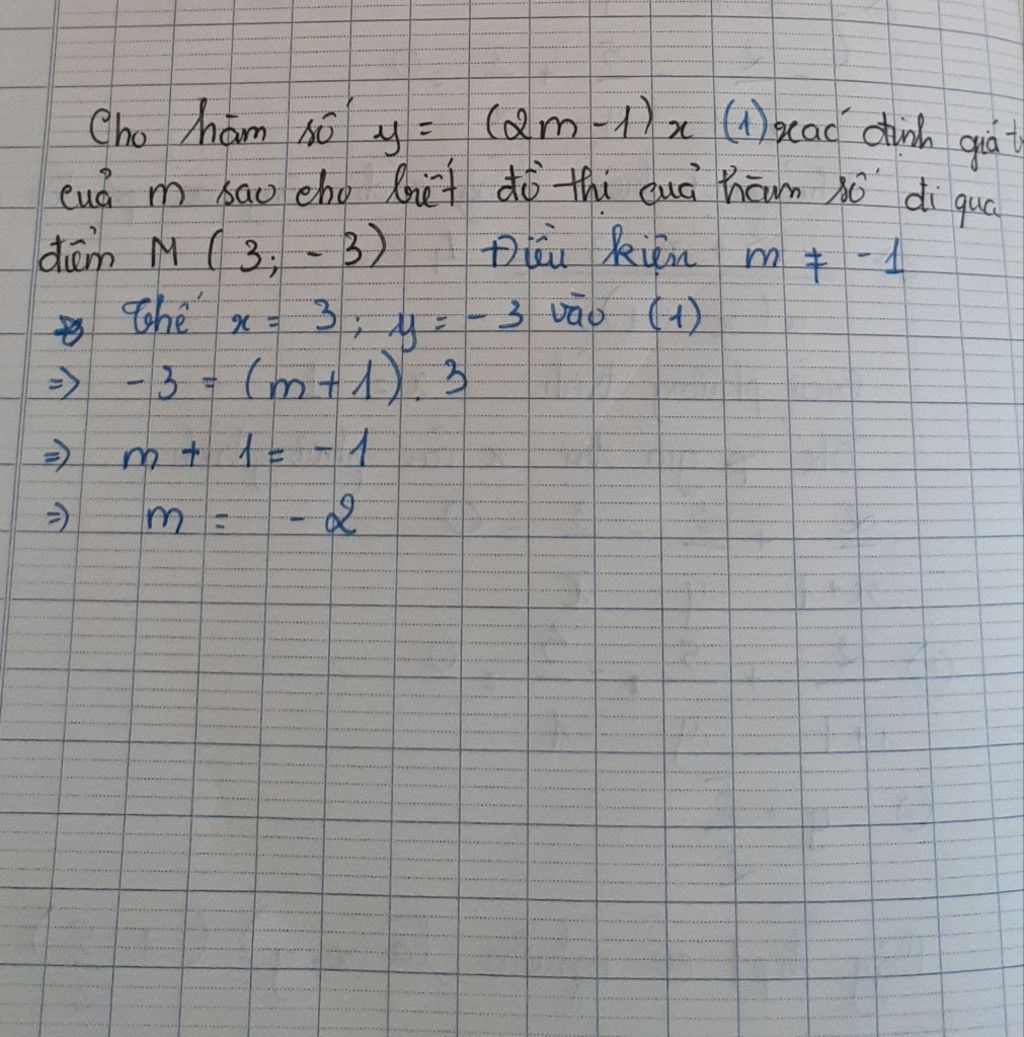 Cho hàm số y = (2m - 1)x (1) xác định giá t
của m sao cho biết đồ thị của hàm số đi qua
điểm M (3; -3) Điều kiện m ≠ -1
Thế x = 3; y = -3 vào (1)
=> -3 = (m+1). 3
=> m + 1 = -1
=> m = -2